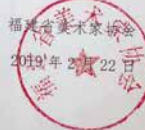 福建省美术家协会
2019年2月22日